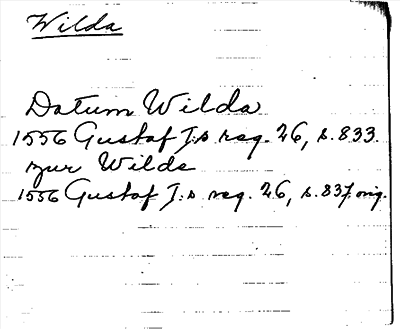 Wilda
Datum Wilda
1556 Gustaf I.s reg. 26, s. 833.
zur Wilde
1556 Gustaf I.s reg. 26, s. 837. orig.